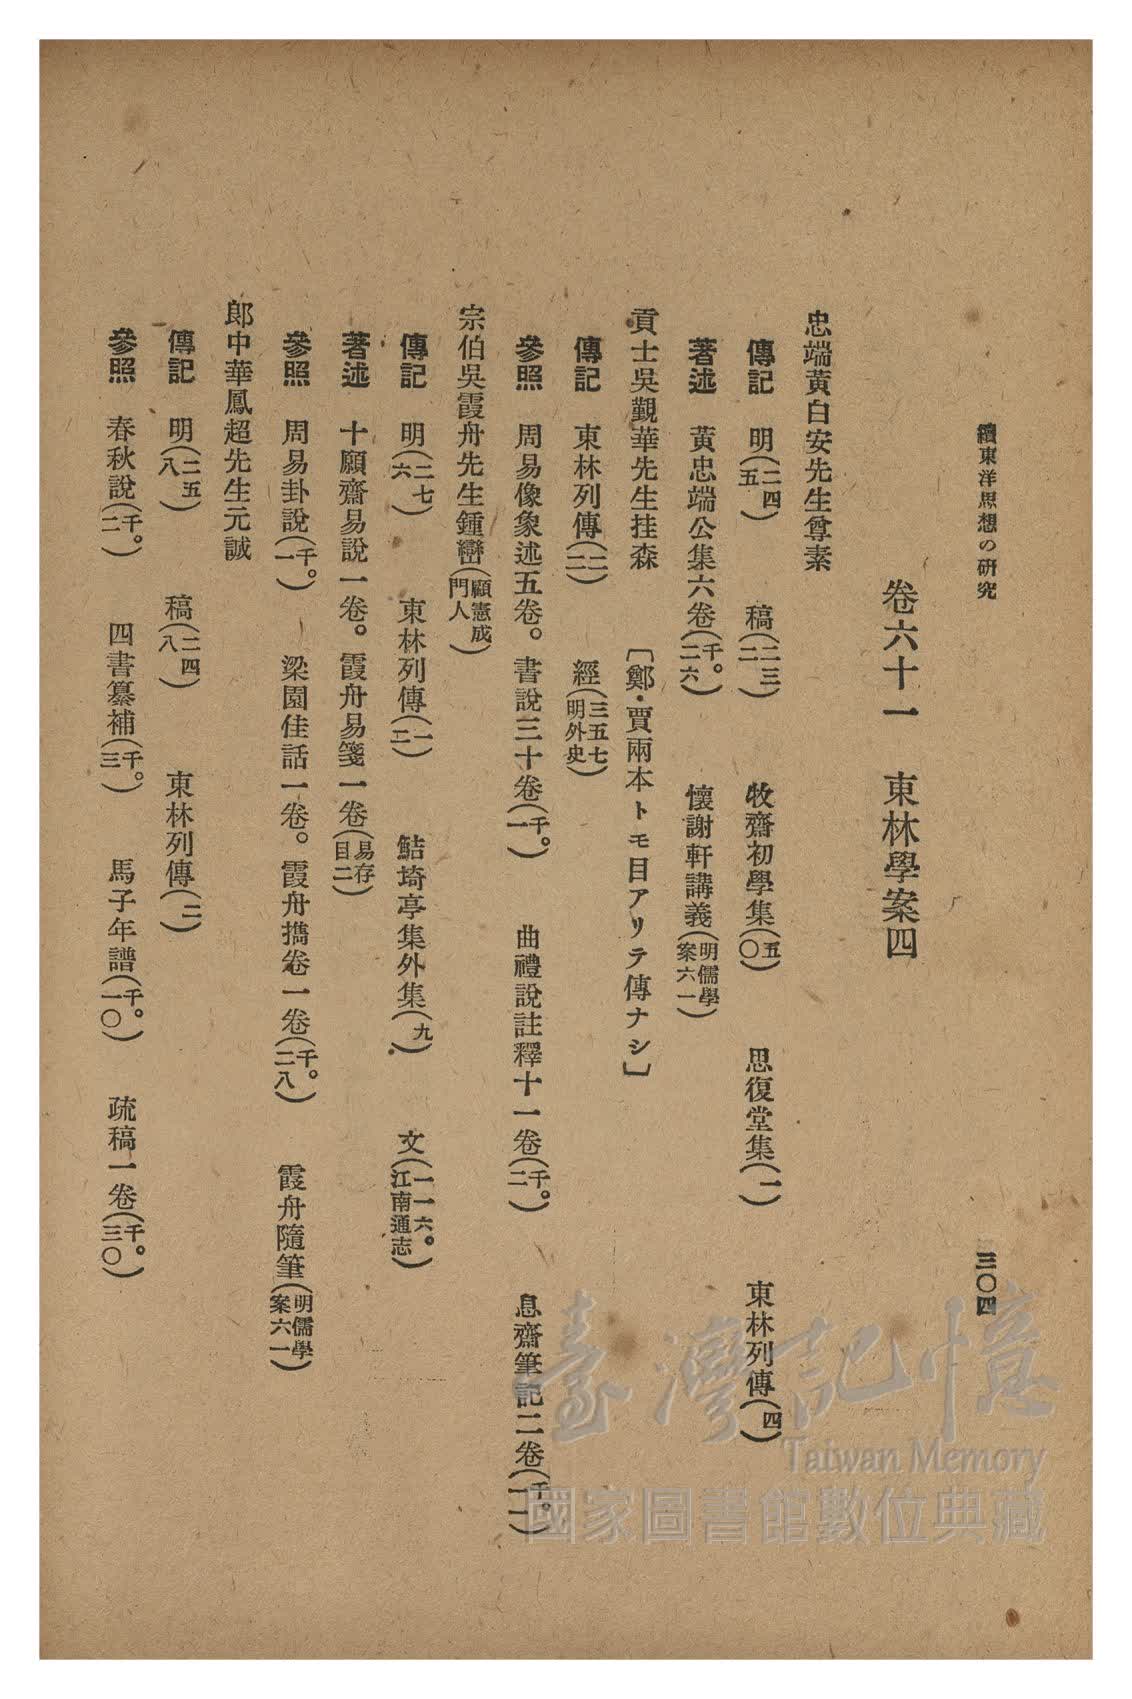 續東洋思想の研究
三〇四
卷六十一　東林學案四
忠端黃白安先生尊素
傳記　明(二四五)　稿(二三二)　牧齋初學集(五〇)　思復堂集(一)　東林列傳(四)
著述　黃忠端公集六卷(千。二六)　懷謝軒講義(明儒學案六一)
貢士吳覲華先生挂森　〔鄭・賈兩本トモ目アリテ傳ナシ〕
傳記　東林列傳(二二)　經(三五七明外史)
參照　周易像象述五卷。書說三十卷(千。一)　曲禮說註釋十一卷(千。二)　息齋筆記二卷(千。一一)
宗伯吳霞舟先生鍾巒(顧憲成門人)
傳記　明(二七六)　東林列傳(一二)　鮚埼亭集外集(九)　文(一一六。江南通志)
著述　十願齋易說一卷。霞舟易箋一卷(易存目二)
參照　周易卦說(千。一)　梁園佳話一卷。霞舟擕卷一卷(千。二八)　霞舟隨筆(明儒學案六一)
郎中華鳳超先生元誠
傳記　明(二五八)　稿(二四八)　東林列傳(二)
參照　春秋說(千。二)　四書纂補(千。三)　馬子年譜(千。一〇)　疏稿一卷(千。三〇)
臺灣記憶
Taiwan Memory
國家圖書館數位典藏